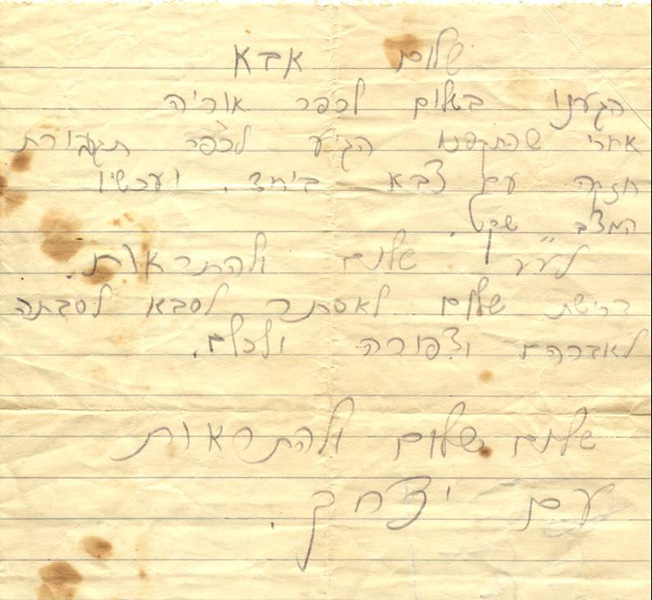 שלום אבא
הגענו בשלום לכפר אוריה
אחרי שהתקפנו הגיע לכפר תגבורת
חזקה עם צבא ביחד. ועכשיו
המצב שקט.
שלום ולהתראות.
דרישת שלום לאסתר לסבא לסבתה
לאברהם וצפורה ולכלם.
שלום שלום ולהתראות
יצחק.